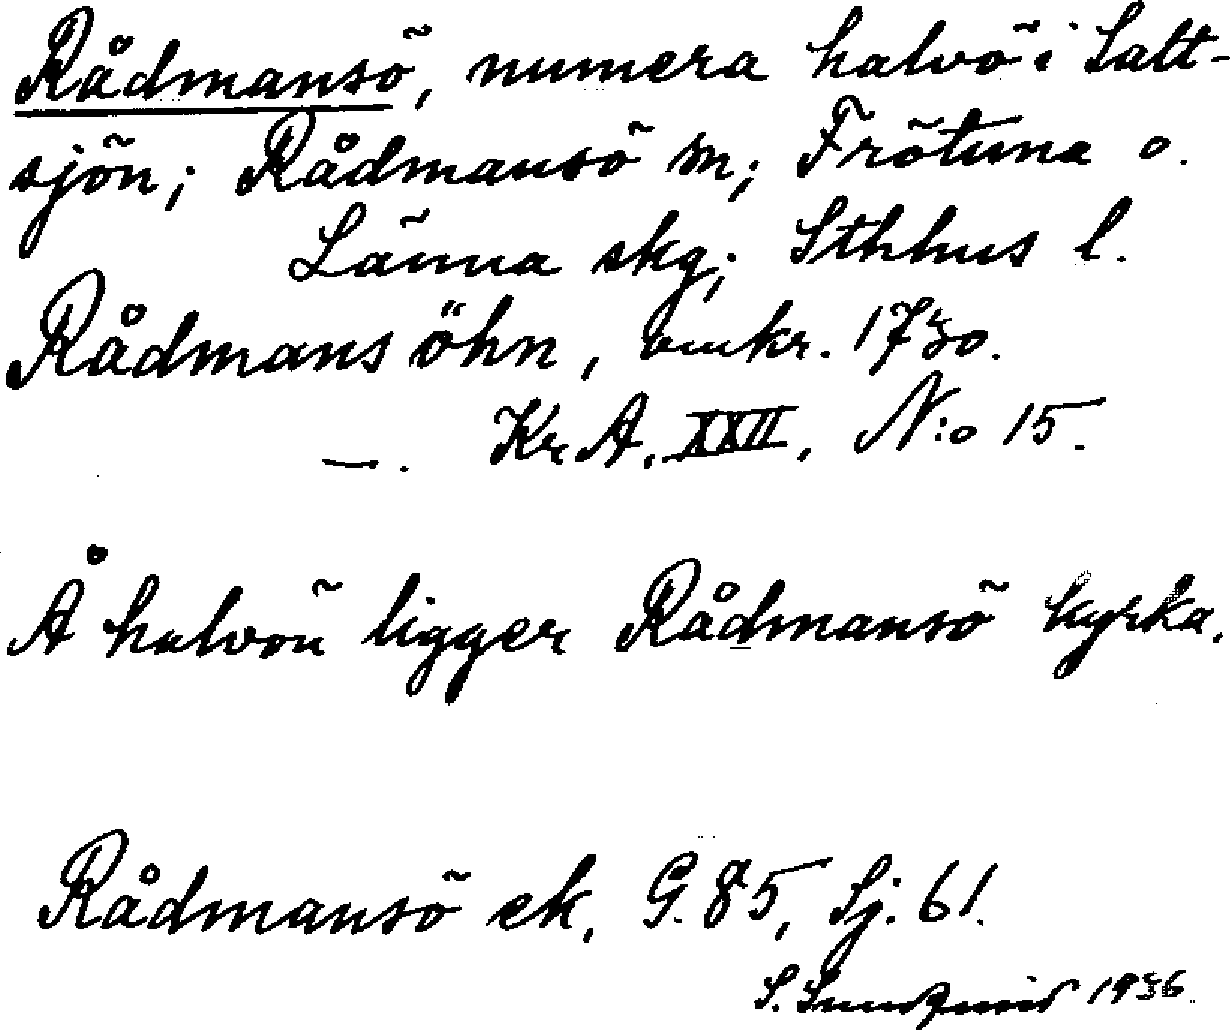 Rådmansö, numera halvö i Salt-
sjön; Rådmansö sn; Frötuna o.
Länna skg; Sthlms l.
Rådmans öhn, omkr. 1730.
—. Kr A. XXII, N:o 15.
Å halvön ligger Rådmansö kyrka.
Rådmansö ek. G. 85, Sj. 61.
S. 1936.